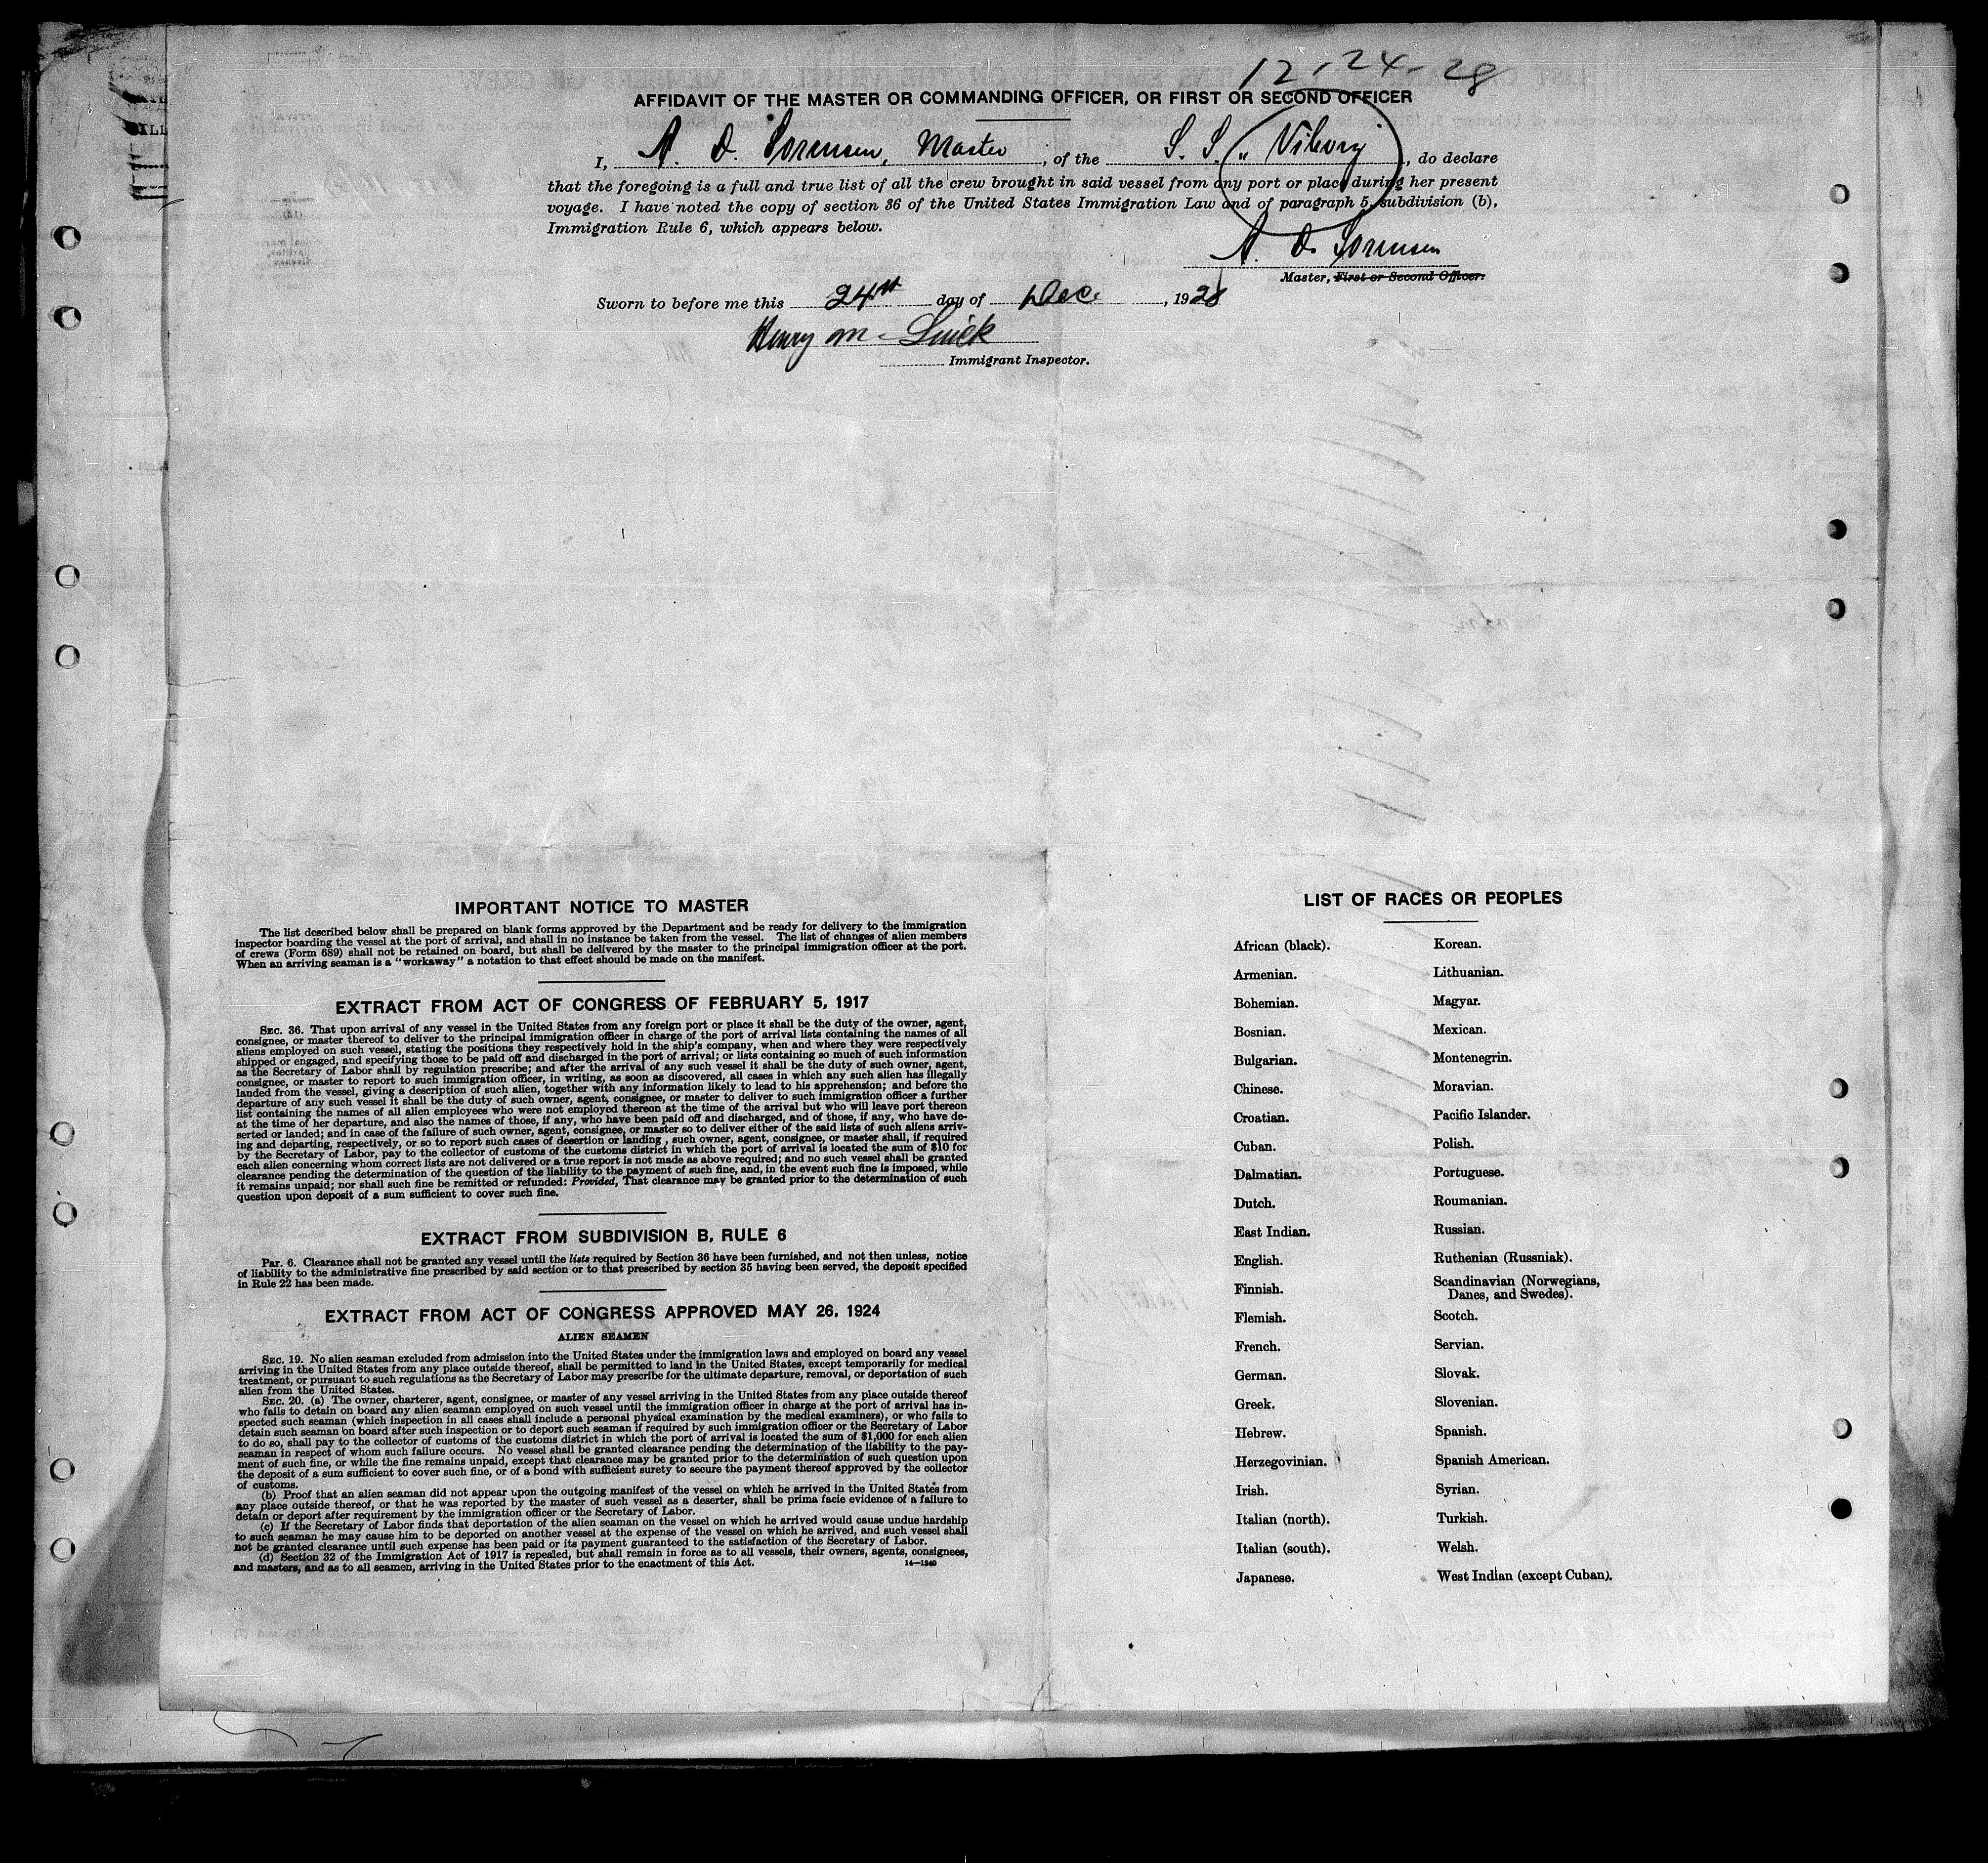 12-24-28
AFFIDAVIT OF THE MASTER OR COMMANDING OFFICER, OR FIRST OR SECOND OFFICER
I, A. D. Sorensen, Master, of the S. S. " Viborg, do declare
that the foregoing is a full and true list of all the crew brought in said vessel from any port or place during her present
voyage. I have noted the copy of section 36 of the United States Immigration Law and of paragraph 5, subdivision (b),
Immigration Rule 6, which appears below.
A. D. Sorensen
Master, First or Second Officer.
Sworn to before me this 24th day of Dec., 1928
Henry M.
Immigrant Inspector.
IMPORTANT NOTICE TO MASTER
The list described below shall be prepared on blank forms approved by the Department and be ready for delivery to the immigration
inspector boarding the vessel at the port of arrival, and shall in no instance be taken from the vessel. The list of changes of alien members
of crews (Form 689) shall not be retained on board, but shall be delivered by the master to the principal immigration officer at the port.
When an arriving seaman is a "workaway" a notation to that effect should be made on the manifest.
EXTRACT FROM ACT OF CONGRESS OF FEBRUARY 5, 1917
SEC. 36. That upon arrival of any vessel in the United States from any foreign port or place it shall be the duty of the owner, agent,
consignee, or master thereof to deliver to the principal immigration officer in charge of the port of arrival lists containing the names of all
aliens employed on such vessel, stating the positions they respectively hold in the ship's company, when and where they were respectively
shipped or engaged, and specifying those to be paid off and discharged in the port of arrival; or lists containing so much of such information
as the Secretary of Labor shall by regulation prescribe; and after the arrival of any such vessel it shall be the duty of such owner, agent,
consignee, or master to report to such immigration officer, in writing, as soon as discovered, all cases in which any such alien has illegally
landed from the vessel, giving a description of such alien, together with any information likely to lead to his apprehension; and before the
departure of any such vessel it shall be the duty of such owner, agent, consignee, or master to deliver to such immigration officer a further
list containing the names of all alien employees who were not employed thereon at the time of the arrival but who will leave port thereon
at the time of her departure, and also the names of those, if any, who have been paid off and discharged, and of those, if any, who have de-
serted or landed; and in case of the failure of such owner, agent, consignee, or master so to deliver either of the said lists of such aliens arriv-
ing and departing, respectively, or so to report such cases of desertion or landing, such owner, agent, consignee, or master shall, if required
by the Secretary of Labor, pay to the collector of customs of the customs district in which the port of arrival is located the sum of $10 for
each alien concerning whom correct lists are not delivered or a true report is not made as above required; and no such vessel shall be granted
clearance pending the determination of the question of the liability to the payment of such fine, and, in the event such fine is imposed, while
it remains unpaid; nor shall such fine be remitted or refunded: Provided, That clearance may be granted prior to the determination of such
question upon deposit of a sum sufficient to cover such fine.
EXTRACT FROM SUBDIVISION B, RULE 6
Par. 6. Clearance shall not be granted any vessel until the lists required by Section 36 have been furnished, and not then unless, notice
of liability to the administrative fine prescribed by said section or to that prescribed by section 35 having been served, the deposit specified
in Rule 22 has been made.
EXTRACT FROM ACT OF CONGRESS APPROVED MAY 26, 1924
ALIEN SEAMEN
SEC. 19. No alien seaman excluded from admission into the United States under the immigration laws and employed on board any vessel
arriving in the United States from any place outside thereof, shall be permitted to land in the United States, except temporarily for medical
treatment, or pursuant to such regulations as the Secretary of Labor may prescribe for the ultimate departure, removal, or deportation of such
alien from the United States.
SEC. 20. (a) The owner, charterer, agent, consignee, or master of any vessel arriving in the United States from any place outside thereof
who fails to detain on board any alien seaman employed on such vessel until the immigration officer in charge at the port of arrival has in-
spected such seaman (which inspection in all cases shall include a personal physical examination by the medical examiners), or who fails to
detain such seaman on board after such inspection or to deport such seaman if required by such immigration officer or the Secretary of Labor
to do so, shall pay to the collector of customs of the customs district in which the port of arrival is located the sum of $1,000 for each alien
seaman in respect of whom such failure occurs. No vessel shall be granted clearance pending the determination of the liability to the pay-
ment of such fine, or while the fine remains unpaid, except that clearance may be granted prior to the determination of such question upon
the deposit of a sum sufficient to cover such fine, or of a bond with sufficient surety to secure the payment thereof approved by the collector
of customs.
(b) Proof that an alien seaman did not appear upon the outgoing manifest of the vessel on which he arrived in the United States from
any place outside thereof, or that he was reported by the master of such vessel as a deserter, shall be prima facie evidence of a failure to
detain or deport after requirement by the immigration officer or the Secretary of Labor.
(c) If the Secretary of Labor finds that deportation of the alien seaman on the vessel on which he arrived would cause undue hardship
to such seaman he may cause him to be deported on another vessel at the expense of the vessel on which he arrived, and such vessel shall
not be granted clearance until such expense has been paid or its payment guaranteed to the satisfaction of the Secretary of Labor.
(d) Section 32 of the Immigration Act of 1917 is repealed, but shall remain in force as to all vessels, their owners, agents, consignees,
and masters, and as to all seamen, arriving in the United States prior to the enactment of this Act.
14—1240
LIST OF RACES OR PEOPLES
African (black).
Armenian.
Bohemian.
Bosnian.
Bulgarian.
Chinese.
Croatian.
Cuban.
Dalmatian.
Dutch.
East Indian.
English.
Finnish.
Flemish.
French.
German.
Greek.
Hebrew.
Herzegovinian.
Irish.
Italian (north).
Italian (south).
Japanese.
Korean.
Lithuanian.
Magyar.
Mexican.
Montenegrin.
Moravian.
Pacific Islander.
Polish.
Portuguese.
Roumanian.
Russian.
Ruthenian (Russniak).
Scandinavian (Norwegians,
Danes, and Swedes).
Scotch.
Servian.
Slovak.
Slovenian.
Spanish.
Spanish American.
Syrian.
Turkish.
Welsh.
West Indian (except Cuban).